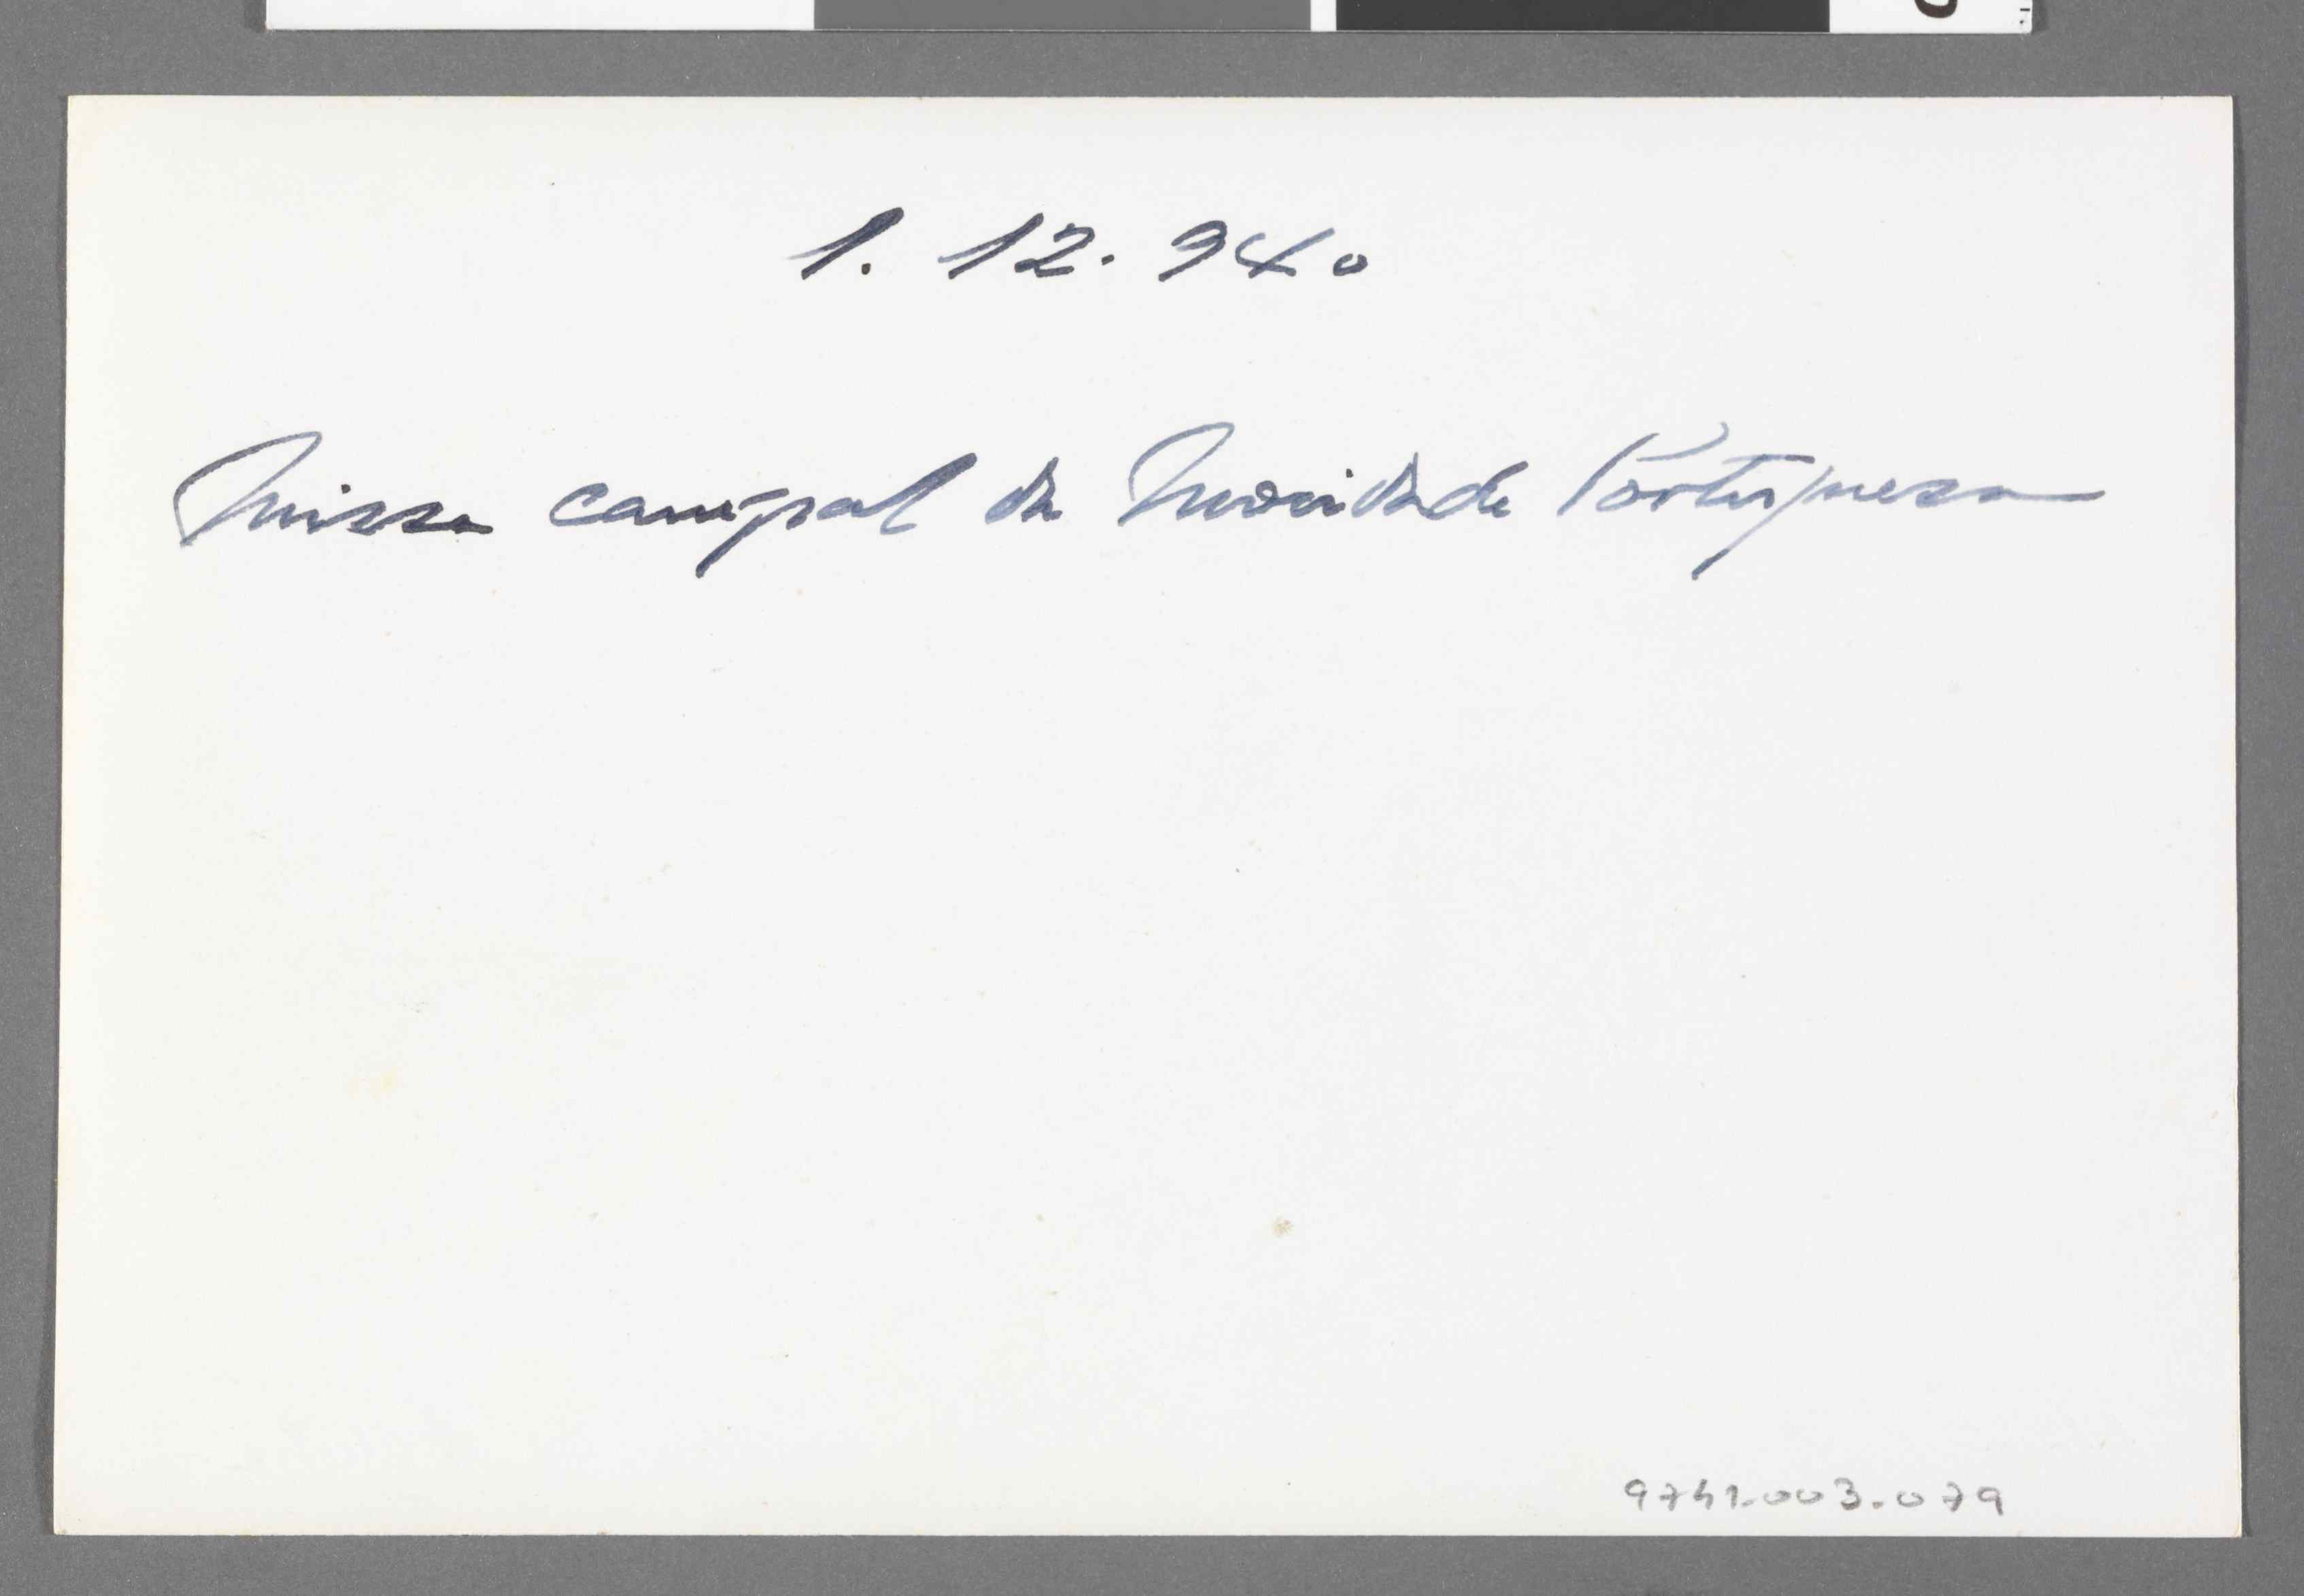 1. 12. 940
Missa campal da Mocidade Portuguesa
9741.003.079